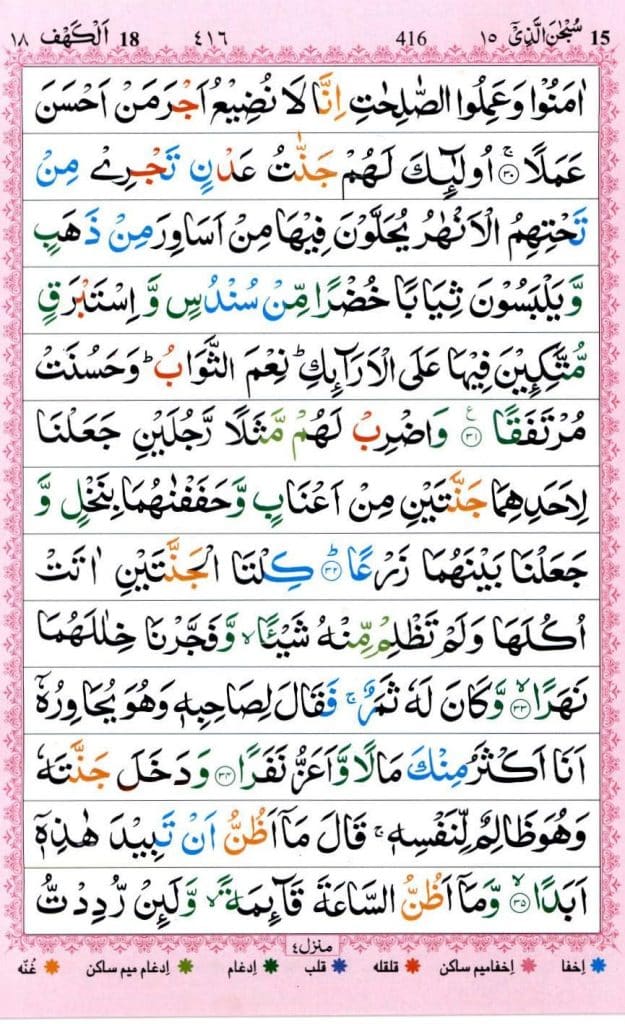 15 سُبْحٰنَ الَّذِیْۤ ١٥ 416 ٤١٦ 18 اَلْكَهْف ١٨
اٰمَنُوْا وَعَمِلُوا الصّٰلِحٰتِ اِنَّا لَا نُضِیْعُ اَجْرَ مَنْ اَحْسَنَ
عَمَلًا ۚ‏﴿۳۰﴾ اُولٰٓئِكَ لَهُمْ جَنّٰتُ عَدْنٍ تَجْرِیْ مِنْ
تَحْتِهِمُ الْاَنْهٰرُ یُحَلَّوْنَ فِیْهَا مِنْ اَسَاوِرَ مِنْ ذَهَبٍ
وَّ یَلْبَسُوْنَ ثِیَابًا خُضْرًا مِّنْ سُنْدُسٍ وَّ اِسْتَبْرَقٍ
مُّتَّكِـِٕیْنَ فِیْهَا عَلَى الْاَرَآئِكِ ؕ نِعْمَ الثَّوَابُ ؕ وَحَسُنَتْ
مُرْتَفَقًا ﴿۳۱﴾ ع وَاضْرِبْ لَهُمْ مَّثَلًا رَّجُلَیْنِ جَعَلْنَا
لِاَحَدِهِمَا جَنَّتَیْنِ مِنْ اَعْنَابٍ وَّحَفَفْنٰهُمَا بِنَخْلٍ وَّ
جَعَلْنَا بَیْنَهُمَا زَرْعًا ؕ﴿۳۲﴾ كِلْتَا الْجَنَّتَیْنِ اٰتَتْ
اُكُلَهَا وَلَمْ تَظْلِمْ مِّنْهُ شَیْـًٔا ۙ وَّفَجَّرْنَا خِلٰلَهُمَا
نَهَرًا ۙ﴿۳۳﴾ وَّكَانَ لَهٗ ثَمَرٌ ۚ فَقَالَ لِصَاحِبِهٖ وَهُوَ یُحَاوِرُهٗۤ
اَنَا اَكْثَرُ مِنْكَ مَالًا وَّاَعَزُّ نَفَرًا ﴿۳۴﴾ وَدَخَلَ جَنَّتَهٗ
وَهُوَ ظَالِمٌ لِّنَفْسِهٖ ۚ قَالَ مَاۤ اَظُنُّ اَنْ تَبِیْدَ هٰذِهٖۤ
اَبَدًا ۙ﴿۳۵﴾ وَّمَاۤ اَظُنُّ السَّاعَةَ قَآئِمَةً ۙ وَّلَئِنْ رُّدِدْتُّ
منزل ٤
اِخفا اِخفامیم ساکن قلقله قلب اِدغام اِدغام میم ساکن غُنّه